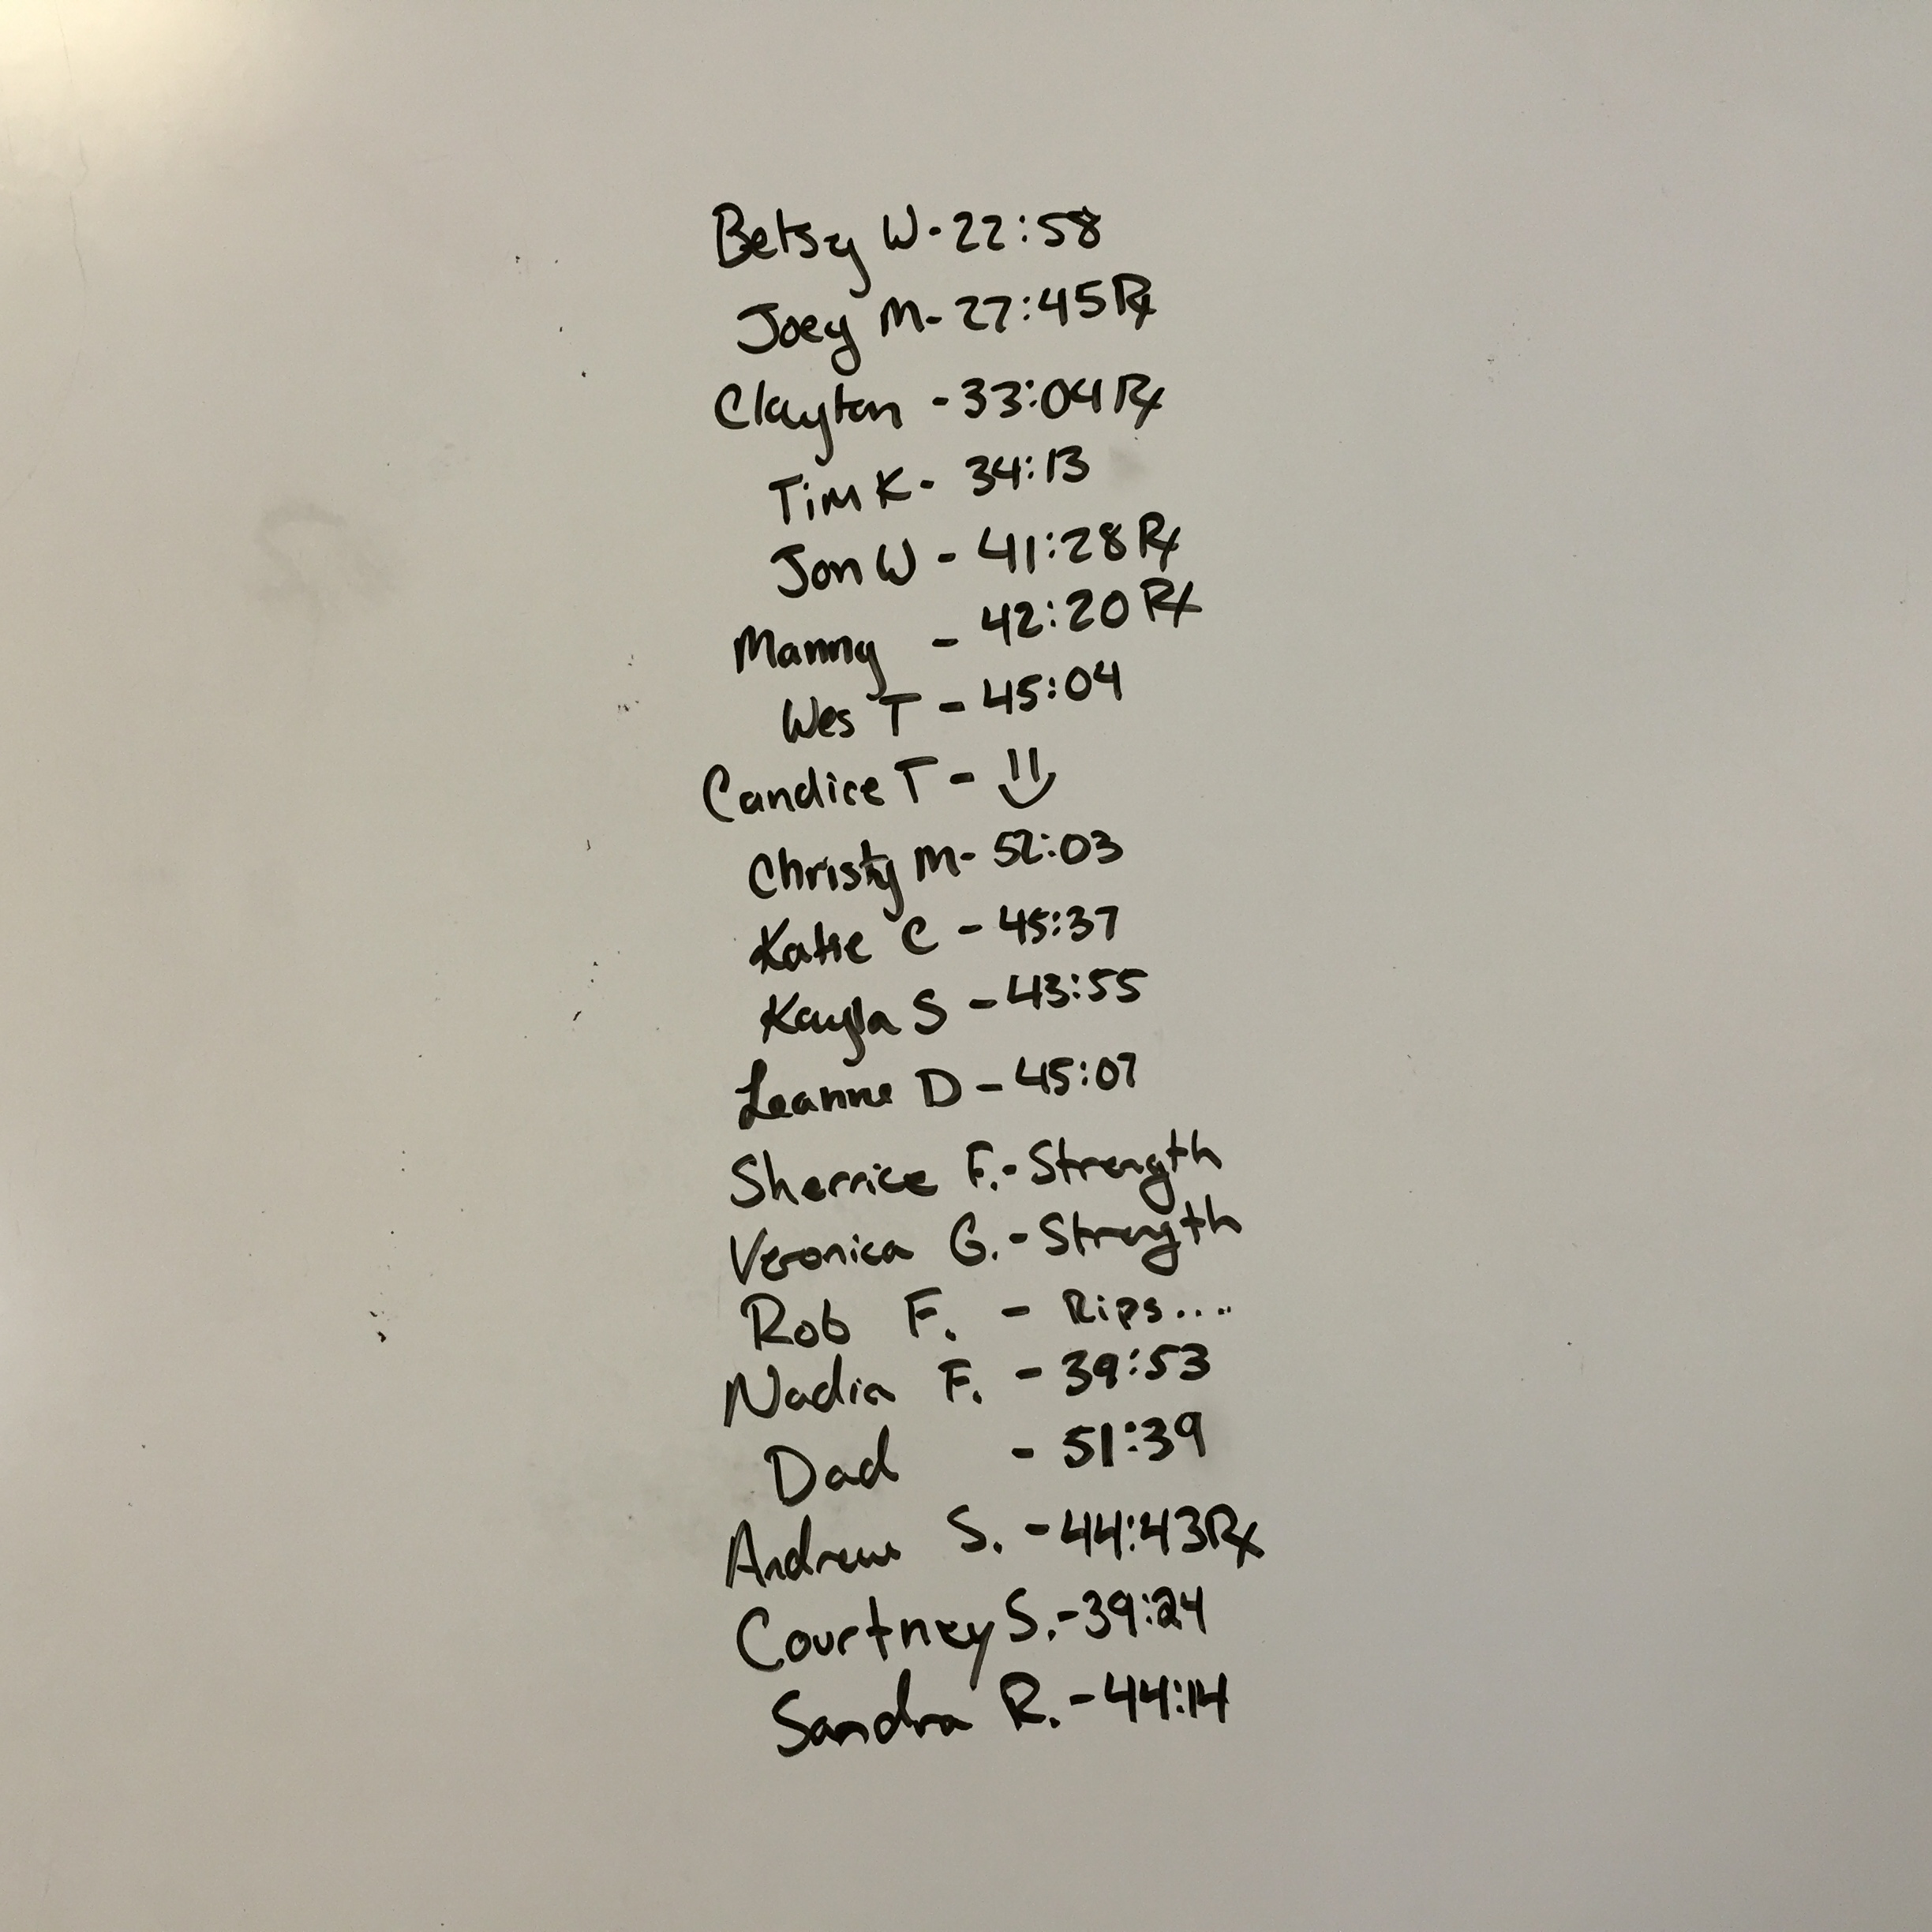 Betsy W - 22:58
Joey M - 27:45 Rx
Clayton - 33:04 Rx
Tim K - 34:13
Jon W - 41:28 Rx
Manny - 42:20 Rx
Wes T - 45:04
Candice T -
Christy M - 52:03
Katie C - 45:37
Kayla S - 43:55
Leanne D - 45:07
Sherrice F. - Strength
Veronica G. - Strength
Rob F. - Rips....
Nadia F. - 39:53
Dad - 51:39
Andrew S. - 44:43 Rx
Courtney S. - 39:24
Sandra R. - 44:14